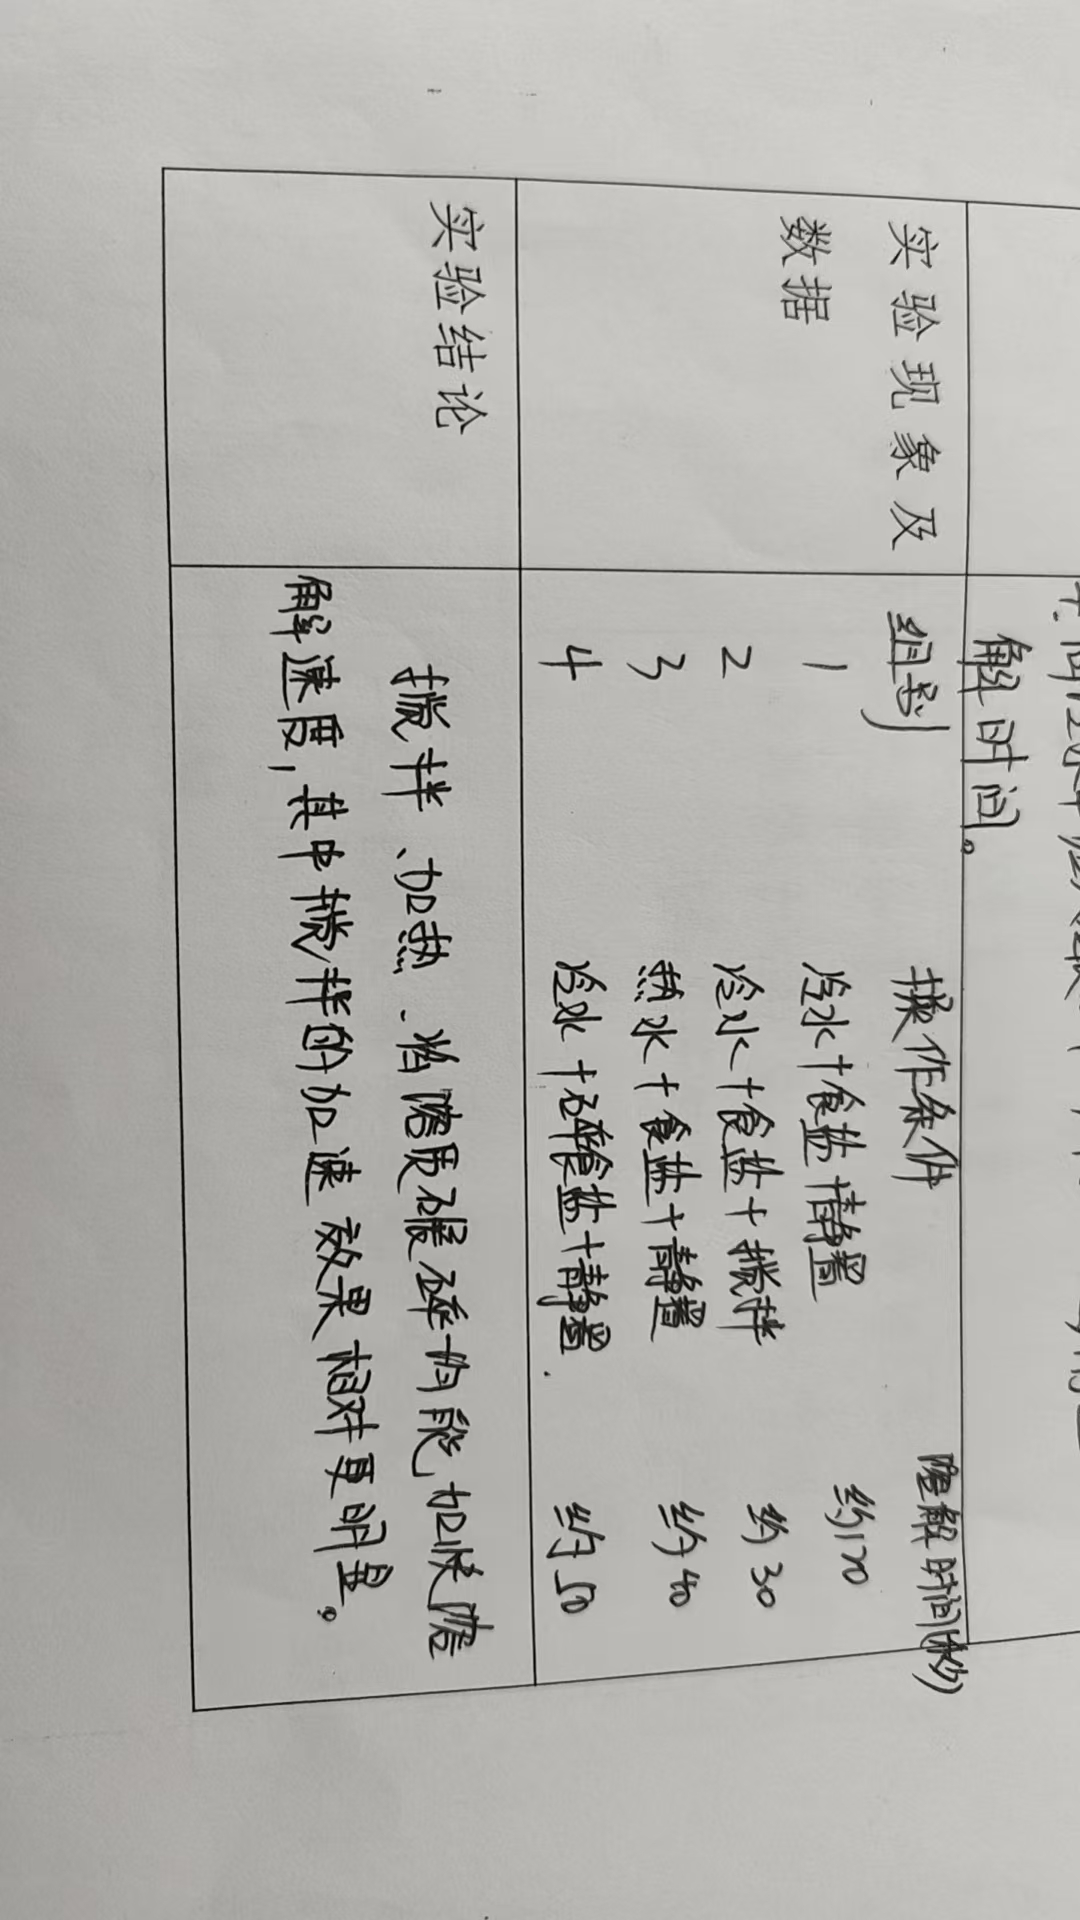 解时间。
实验现象及
数据
组别 操作条件 溶解时间(秒)
1 冷水+食盐+静置 约120
2 冷水+食盐+搅拌 约30
3 热水+食盐+静置 约40
4 冷水+碎食盐+静置. 约50
实验结论
搅拌、加热、将溶质碾碎均能加快溶
解速度,其中搅拌的加速效果相对更明显。